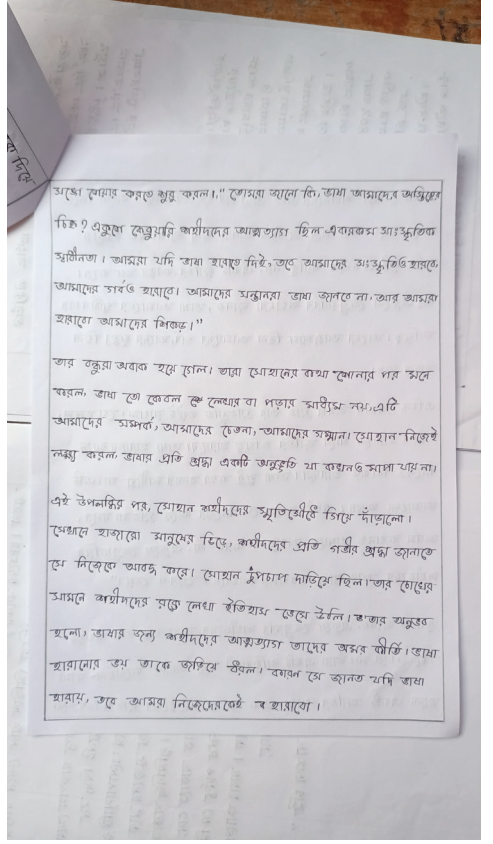 রা দিয়ে
সঙ্গে শেয়ার করতে শুরু করল। "তোমরা জানো কি, ভাষা আমাদের অস্তিত্বের
চিহ্ন? একুশে ফেব্রুয়ারি শহীদদের আত্মত্যাগ ছিল একরকম সাংস্কৃতিক
স্বাধীনতা। আমরা যদি ভাষা হারাতে দিই, তবে আমাদের সংস্কৃতিও হারাবে,
আমাদের গর্বও হারাবে। আমাদের সন্তানরা ভাষা জানবে না, আর আমরা
হারাবো আমাদের শিকড়।"
তার বন্ধুরা অবাক হয়ে গেল। তারা সোহানের কথা শোনার পর মনে
করল, ভাষা তো কেবল লেখার বা পড়ার মাধ্যম নয়, এটি
আমাদের সম্পর্ক, আমাদের চেতনা, আমাদের সম্মান। সোহান নিজেই
লক্ষ্য করল, ভাষার প্রতি শ্রদ্ধা একটি অনুভূতি যা কখনও মাপা যায় না।
এই উপলব্ধির পর, সোহান শহীদদের স্মৃতিসৌধে গিয়ে দাঁড়ালো।
সেখানে হাজারো মানুষের ভিড়ে, শহীদদের প্রতি গভীর শ্রদ্ধা জানাতে
সে নিজেকে আবদ্ধ করে। সোহান চুপচাপ দাড়িয়ে ছিল। তার চোখের
সামনে শহীদদের রক্তে লেখা ইতিহাস ভেসে উঠল। তার অনুভব
হলো, ভাষার জন্য শহীদদের আত্মত্যাগ তাদের অমর কীর্তি। ভাষা
হারানোর ভয় তাকে জড়িয়ে ধরল। কারন সে জানত যদি ভাষা
হারায়, তবে আমরা নিজেদেরকেই হারাবো।